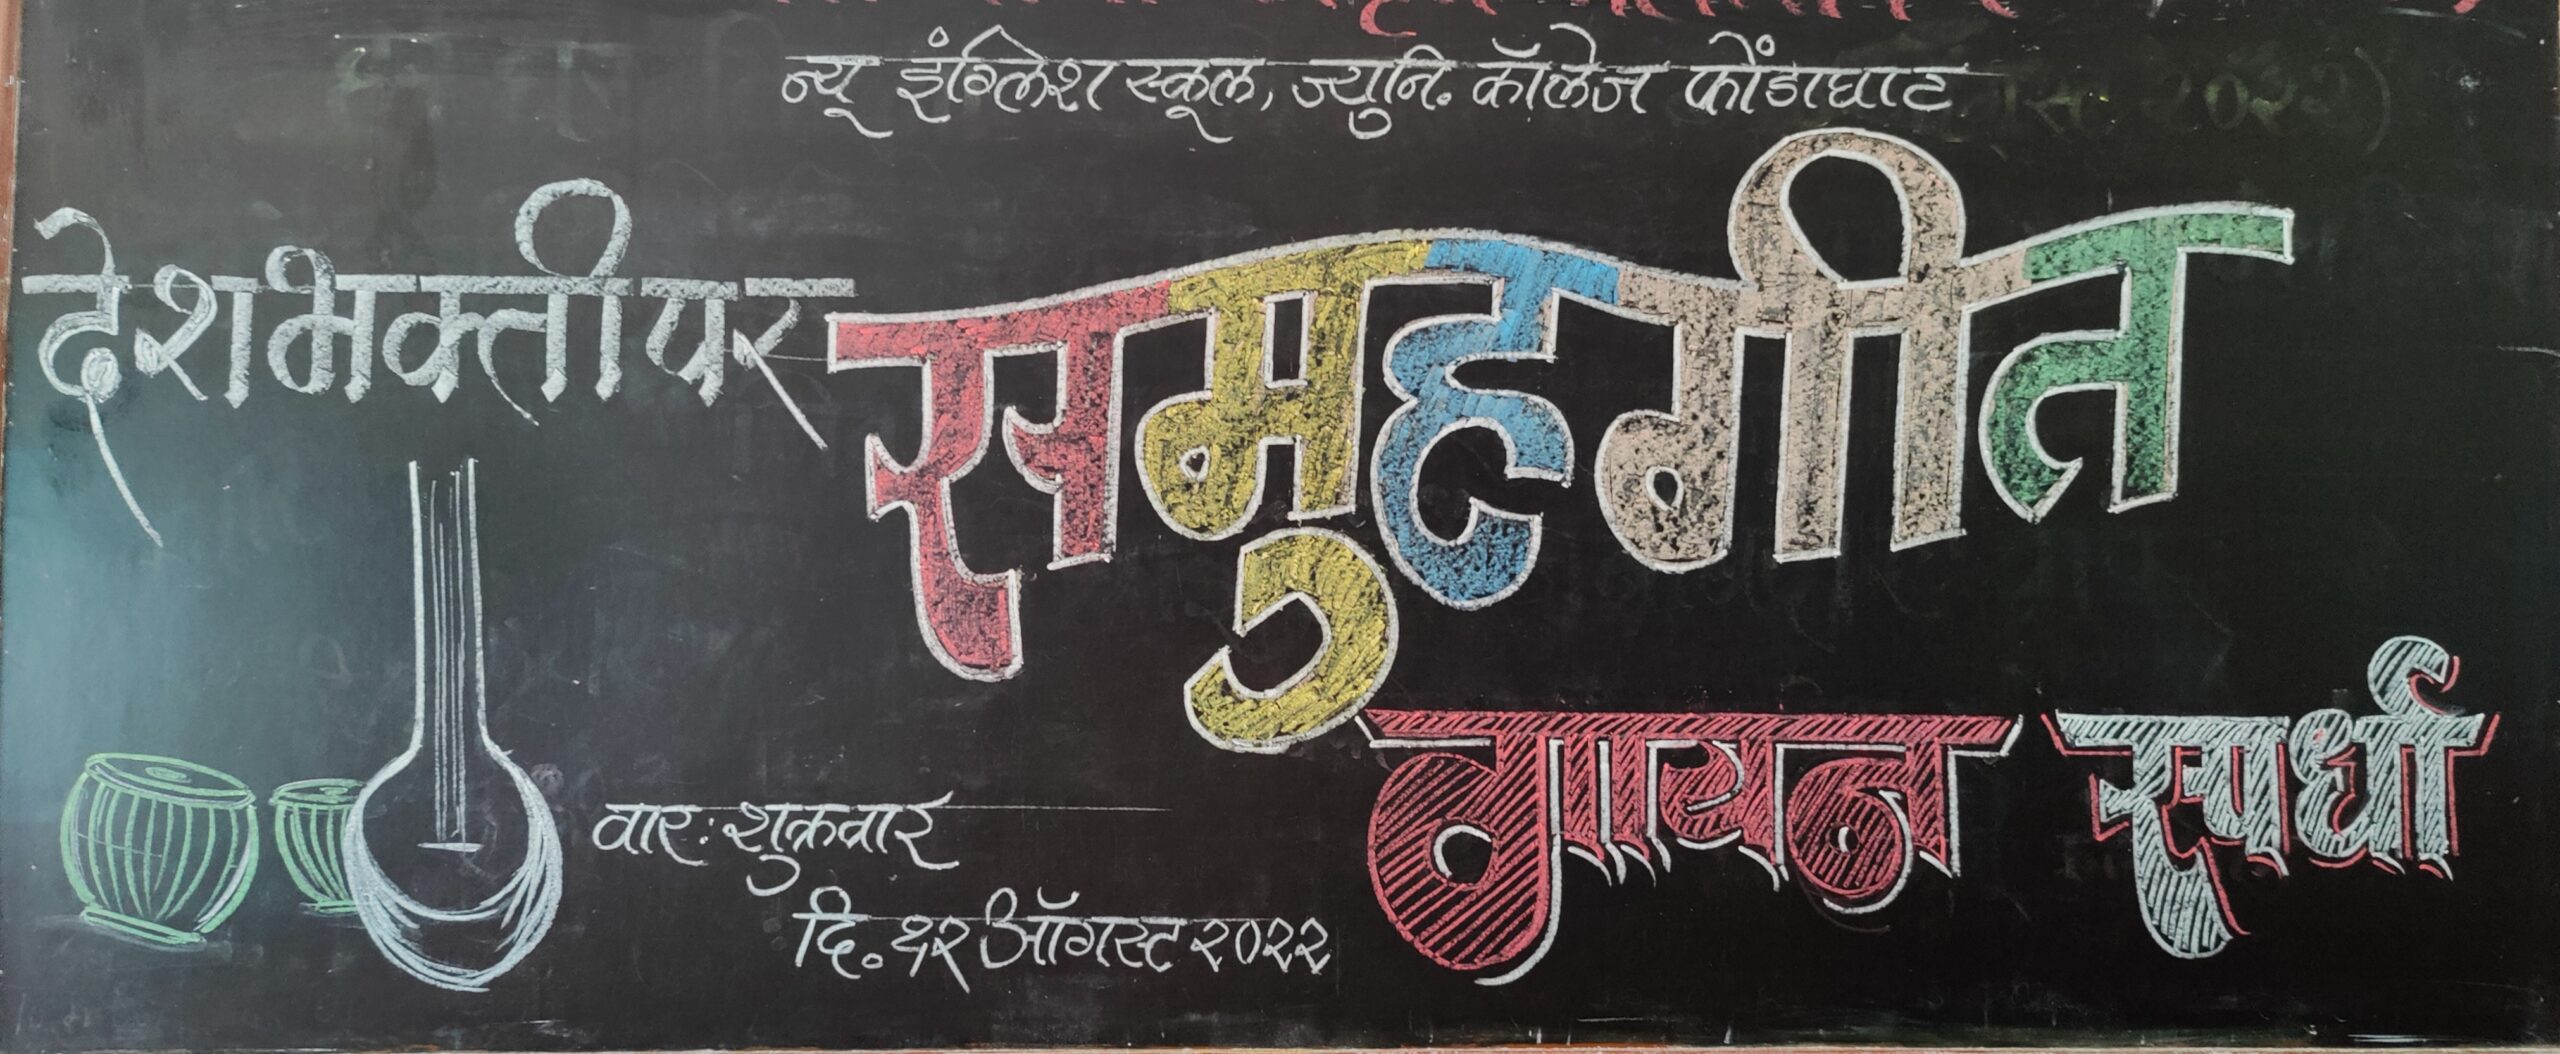 न्यू इंग्लिश स्कूल, ज्युनि. कॉलेज फोंडाघाट
देशभक्तीपर
समुहगीत
गायन स्पर्धा
वार: शुक्रवार
दि. १२ ऑगस्ट २०२२